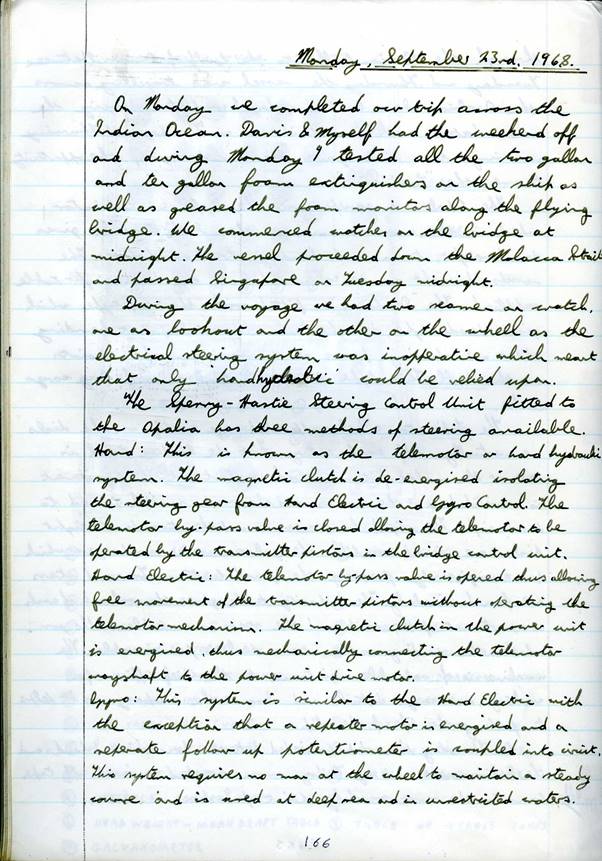 Monday, September 23rd. 1968.
On Monday we completed our trip across the
Indian Ocean. Davis & Myself had the weekend off
and during Monday I tested all the two gallon
and ten gallon foam extinguishers on the ship as
well as greased the foam monitos along the flying
bridge. We commenced watches on the bridge at
midnight. The vessel proceeded down the Malacca Strait
and passed Singapore on Tuesday midnight.
During the voyage we had two seamen on watch,
one as lookout and the other on the wheell as the
electrical steering system was inoperative which meant
that only 'hand hydraulic' could be relied upon.
The Sperry-Hastie Steering Control Unit fitted to
the Opalia has three methods of steering available.
Hand: This is known as the telemotor or hand hydraulic
system. The magnetic clutch is de-energised isolating
the steering gear from Hand Electric and Gyro Control. The
telemotor by-pass valve is closed allowing the telemotor to be
operated by the transmitter pistons in the bridge control unit.
Hand Electric: The telemotor by-pass valve is opened thus allowing
free movement of the transmitter pistons without operating the
telemotor mechanism. The magnetic clutch in the power unit
is energised, thus mechanically connecting the telemotor
wayshaft to the power unit drive motor.
Gyro: This system is similar to the Hand Electric with
the exception that a repeater motor is energised and a
seperate follow up potentiometer is coupled into circuit.
This system requires no man at the wheel to maintain a steady
course and is used at deep sea and in unrestricted waters.
166